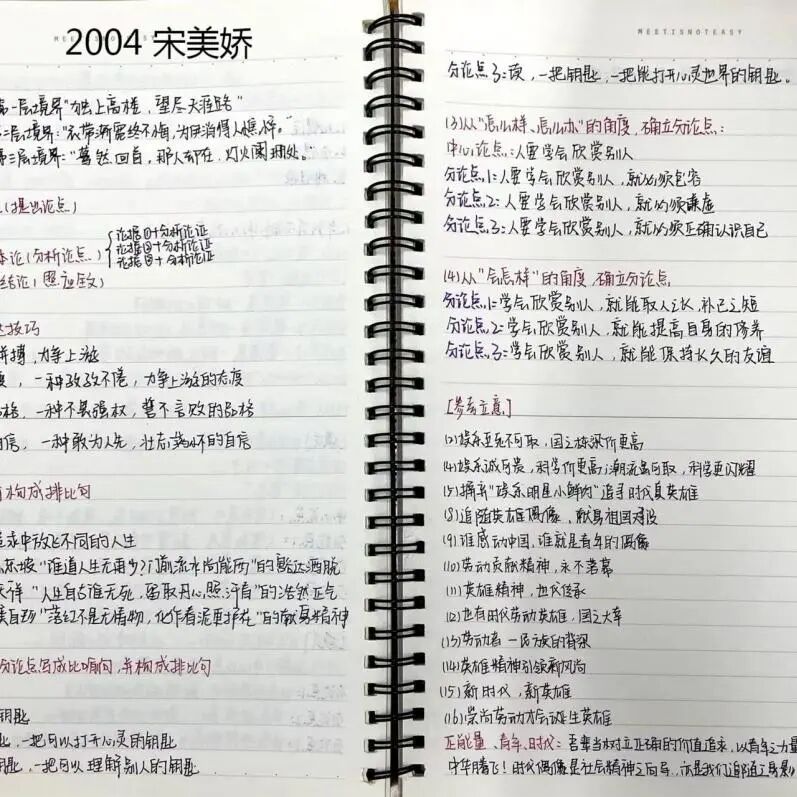 2004 宋美娇
第一层境界"独上高楼，望尽天涯路"
第二层境界："衣带渐宽终不悔，为伊消得人憔悴。"
第三层境界："蓦然回首，那人却在，灯火阑珊处。"
(提出论点)
本论(分析论点)
论据①+分析论证
论据②+分析论证
论据③+分析论证
结论(照应全文)
技巧
拼搏，力争上游
一种孜孜不倦，力争上游的态度
品格，一种不畏强权，誓不言败的品格
自信，一种敢为人先，壮志满怀的自信
构成排比句
追求中放飞不同的人生
苏东坡"谁道人生无再少？门前流水尚能西"的豁达洒脱
文天祥"人生自古谁无死，留取丹心照汗青"的浩然正气
龚自珍"落红不是无情物，化作春泥更护花"的献身精神
分论点写成比喻句，并构成排比句
钥匙
一把可以打开心灵的钥匙
钥匙，一把可以理解别人的钥匙
MEETISNOTEASY
分论点3：读，一把钥匙，一把能打开心灵世界的钥匙。
(3)从"怎么样、怎么办"的角度，确立分论点：
中心论点：人要学会欣赏别人
分论点1：人要学会欣赏别人，就必须包容
分论点2：人要学会欣赏别人，就必须谦虚
分论点3：人要学会欣赏别人，就必须正确认识自己
(4)从"会怎样"的角度，确立分论点
分论点1：学会欣赏别人，就能取人之长，补己之短
分论点2：学会欣赏别人，就能提高自身的修养
分论点3：学会欣赏别人，就能保持长久的友谊
[参考立意]
娱乐至死不可取，国之栋梁价更高
(4)娱乐诚可贵，科学价更高；潮流虽可取，科学更闪耀
(5)摒弃"娱乐明星小鲜肉"追寻时代真英雄
(8)追随英雄偶像，献身祖国建设
(9)谁感动中国，谁就是青年的偶像
(10)劳动贡献精神，永不落幕
(11)英雄精神，世代传承
(12)也有时代劳动英雄，国之大幸
(13)劳动者—民族的脊梁
(14)英雄精神引领新风尚
(15)新时代，新英雄
(16)崇尚劳动才会诞生英雄
正能量、青年、时代：吾辈当树立正确的价值追求，以青年之力量
中华腾飞！时代偶像是社会精神之向导，亦是我们追随之身影